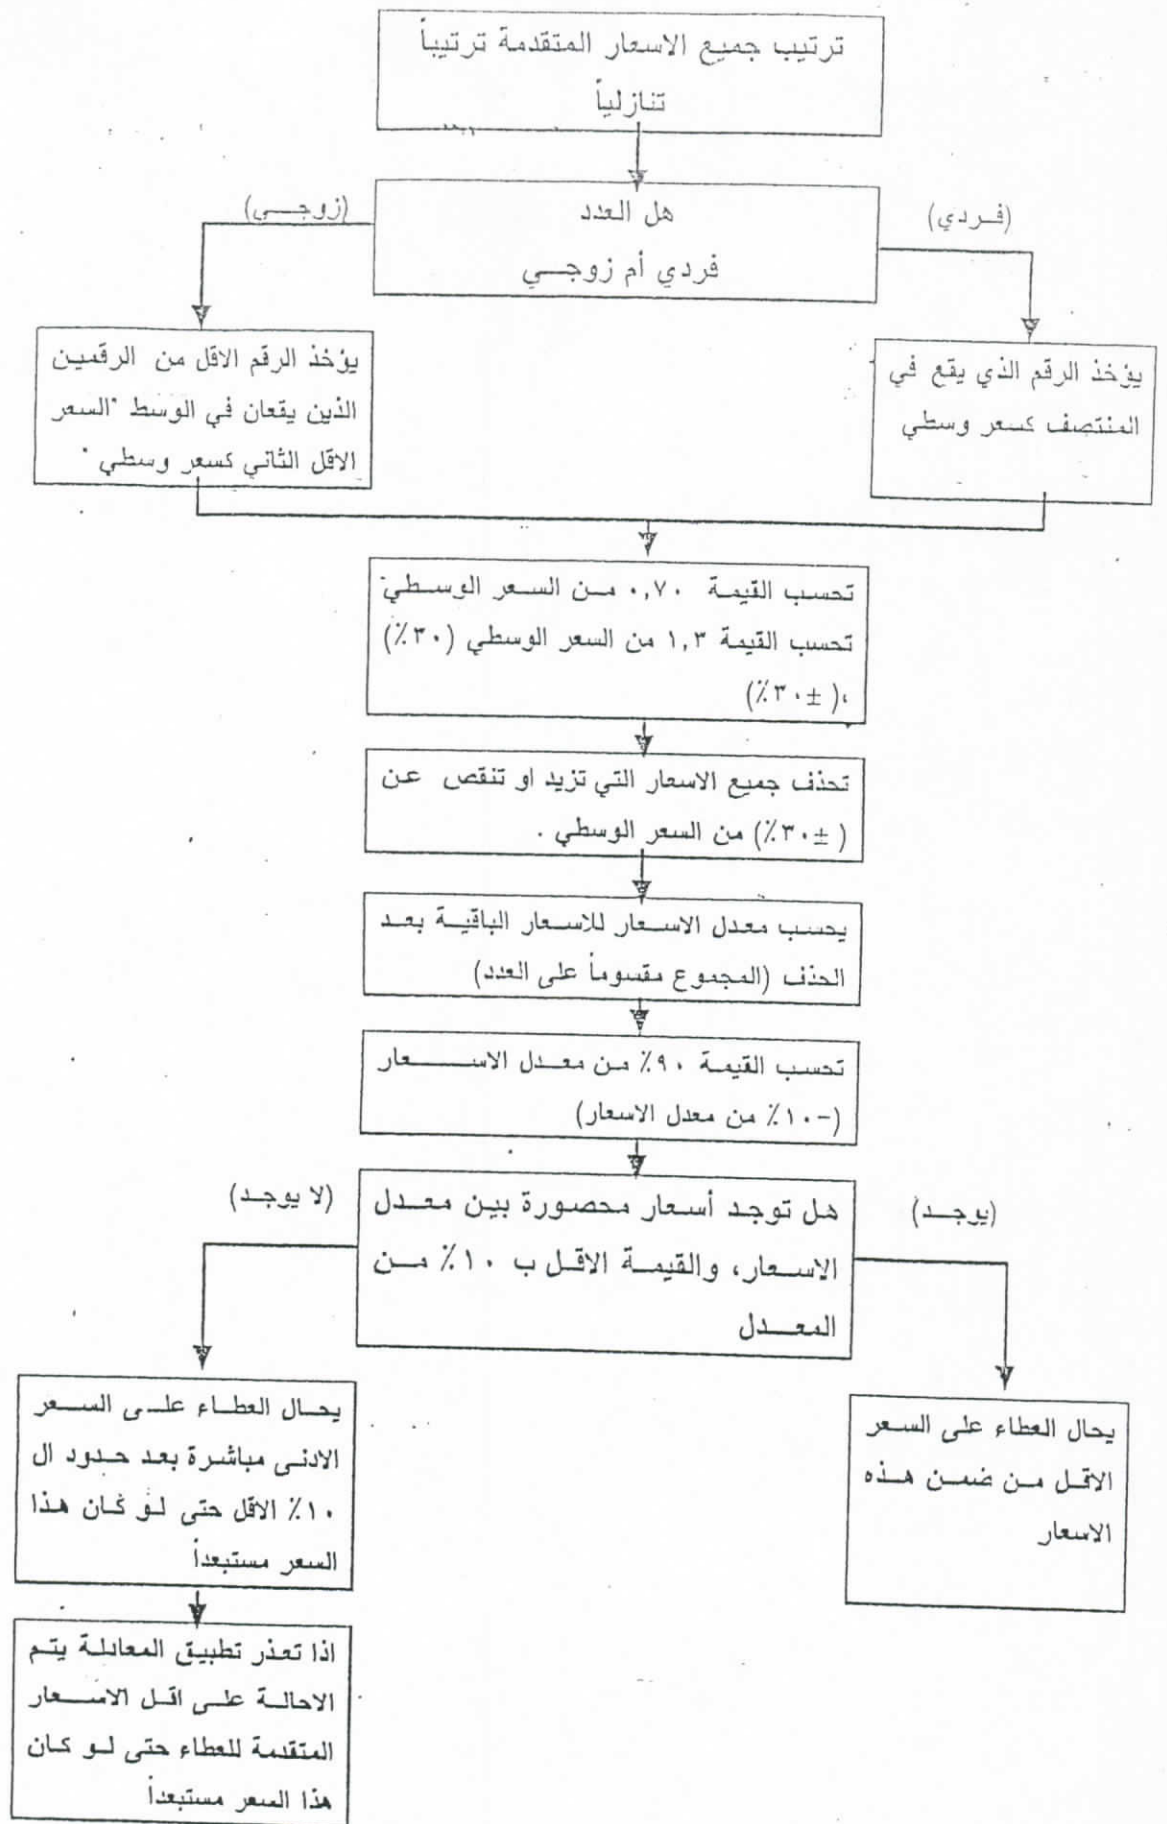 ترتيب جميع الاسعار المتقدمة ترتيباً
تنازلياً
هل العدد
فردي أم زوجــي
(فـردي)
(زوجــي)
يؤخذ الرقم الذي يقع في
المنتصف كسعر وسطي
يؤخذ الرقم الاقل من الرقمين
الذين يقعان في الوسط "السعر
الاقل الثاني كسعر وسطي "
تحسب القيمة ٠,٧٠ من السعر الوسطي
تحسب القيمة ١,٣ من السعر الوسطي (٣٠٪)
،( ±٣٠٪)
تحذف جميع الاسعار التي تزيد او تنقص عن
( ±٣٠٪) من السعر الوسطي .
يحسب معدل الاسعار للاسعار الباقية بعد
الحذف (المجموع مقسوماً على العدد)
تحسب القيمة ٩٠٪ من معدل الاســـعار
(-١٠٪ من معدل الاسعار)
هل توجد أسعار محصورة بين معدل
الاسعار، والقيمة الاقل ب ١٠٪ من
المعـــدل
(يوجـد)
(لا يوجـد)
يحال العطاء على السعر
الاقل من ضمن هذه
الاسعار
يحال العطاء على السعر
الادنى مباشرة بعد حدود ال
١٠٪ الاقل حتى لو كان هذا
السعر مستبعداً
اذا تعذر تطبيق المعادلة يتم
الاحالة على اقل الاسعار
المتقدمة للعطاء حتى لو كان
هذا السعر مستبعداً